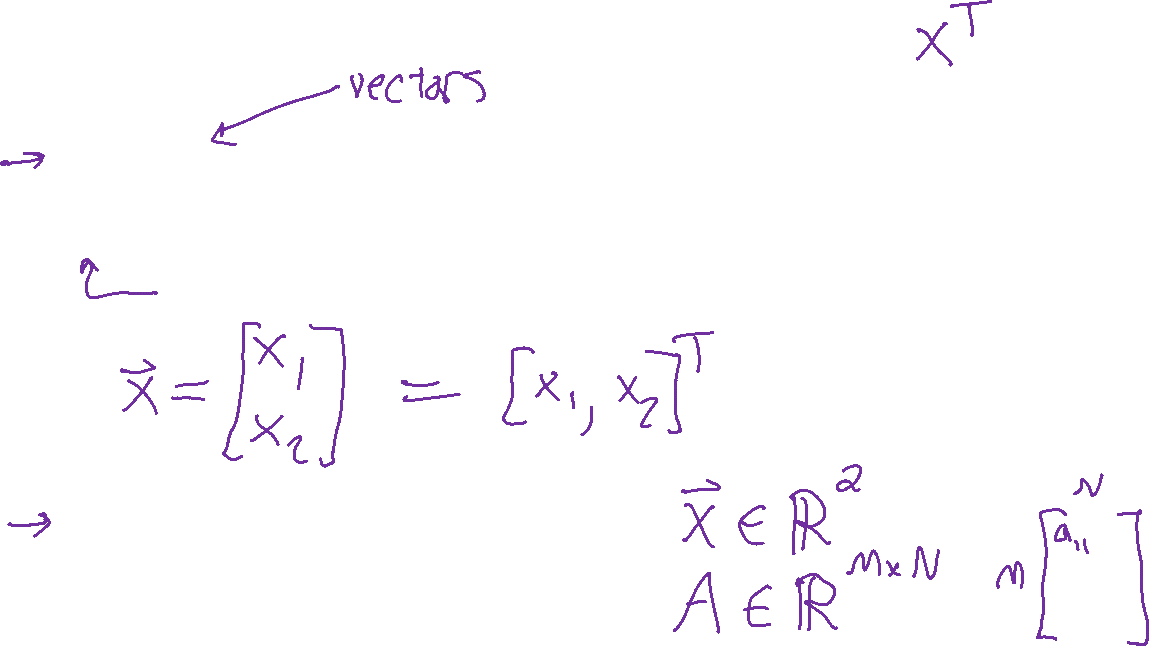 X^T
vectors
→
x⃗ = [x₁ x₂] = [x₁, x₂]^T
→ x⃗ ∈ ℝ²
A ∈ ℝ^{M×N} M [a₁₁] N